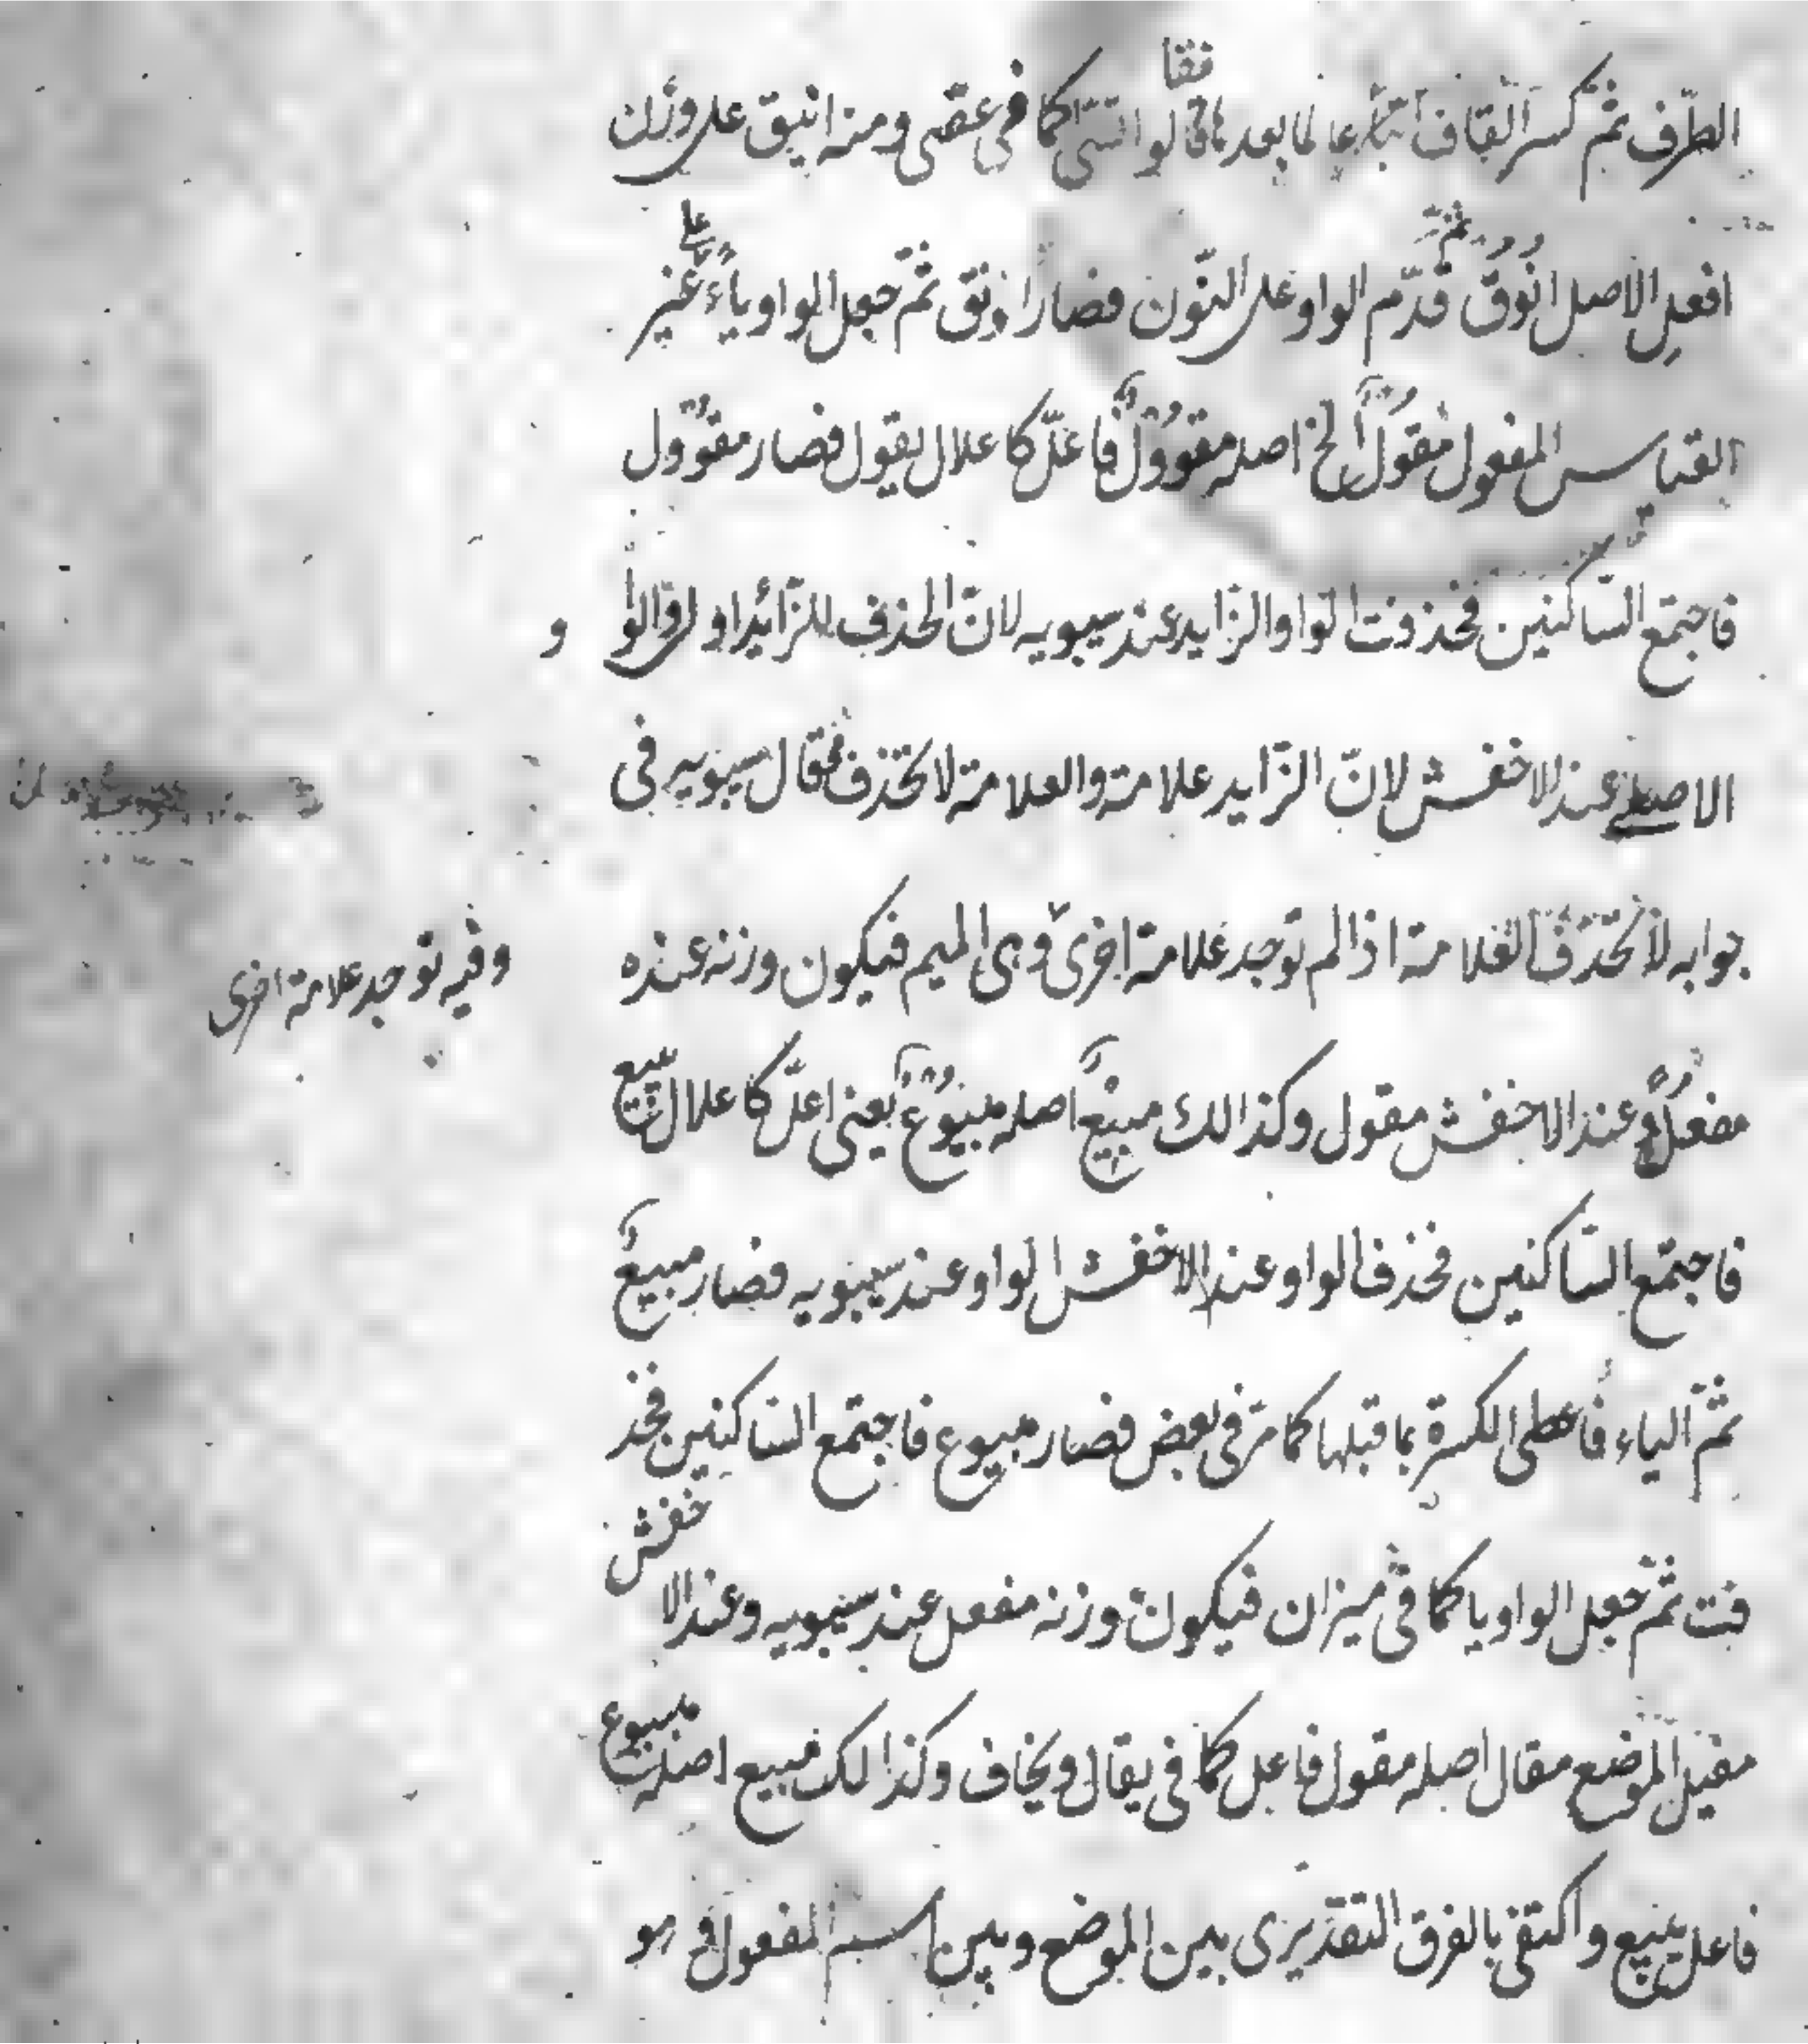 الطّرف ثمّ كسر القاف اتباعا لما بعدها فقالوا قسّى كما فى عصّى ومنه اينق على وزن
افعل الاصل انوُق ثمّ قدّم الواو على النّون فصار اونق ثمّ جعل الواو ياءً على غير
القياس المفعول مقولٌ الخ اصله مقوُولٌ فاعلّ كاعلال يقول فصار مقوُول
فاجتمع السّاكنين فحذفت الواو الزايد عند سيبويه لانّ الحذف للزّائد اولى والواو
الاصلى عند الاخفش لانّ الزّايد علامة والعلامة لا تحذف فقال سيبويه فى
جوابه لا تحذف العلامة اذا لم توجد علامة اخرى وهى الميم فيكون وزنه عنده
وفيه توجد علامة اخرى
مفعلٌ وعند الاخفش مقول وكذالك مبيعٌ اصله مبيُوعٌ يعنى اعلّ كاعلال يبيع
فاجتمع السّاكنين فحذف الواو عند الاخفش الواو عند سيبويه فصار مبيعٌ
ثمّ الياء فاعطى الكسرة بما قبلها كما مرّ فى بعض فصار مبيوع فاجتمع السّاكنين فحذ
فت ثمّ جعل الواو يا كما فى ميزان فيكون وزنه مفعل عند سيبويه وعند الاخفش
مفيل الموضع مقال اصله مقول فاعل كما فى يقال ويخاف وكذالك مبيع اصله مبيوع
فاعل يبيع واكتفى بالفرق التقديرى بين الموضع وبين اسم المفعول وهو